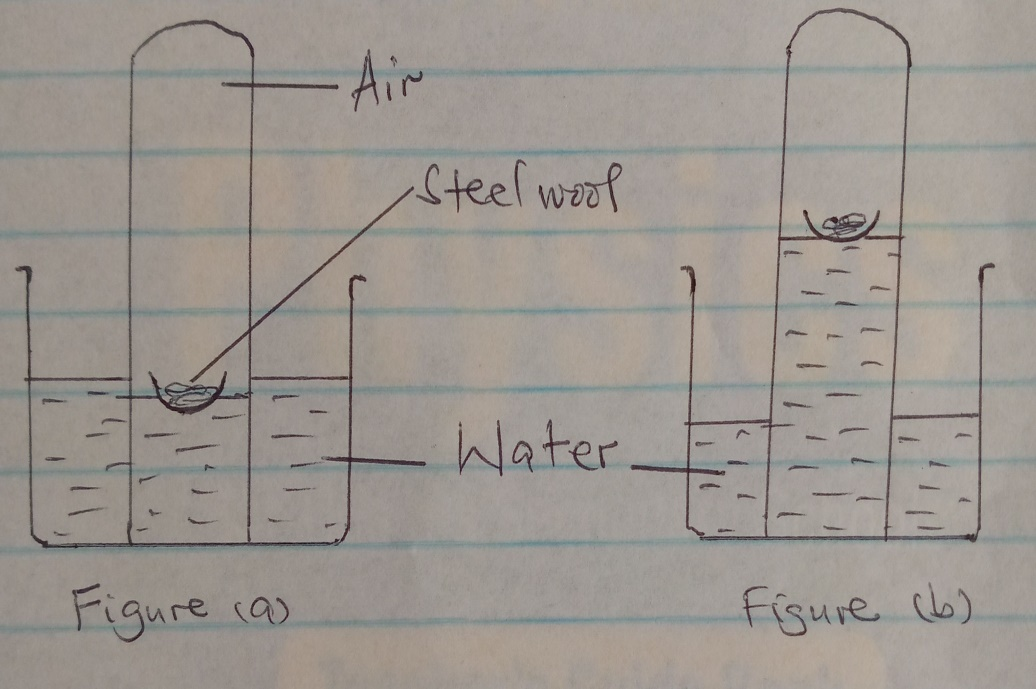 Air
Steel wool
Water
Figure (a)
Figure (b)